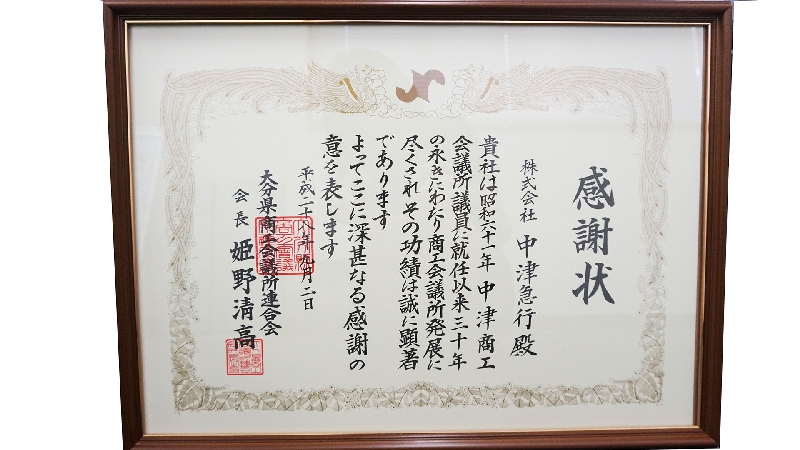 感謝状
株式会社 中津急行殿
貴社は昭和六十一年 中津商工
会議所議員に就任以来三十年
の永きにわたり商工会議所発展に
尽くされ その功績は誠に顕著
であります
よってここに深甚なる感謝の
意を表します
平成二十八年 九月二日
大分県商工会議所連合会
会長 姫野清高